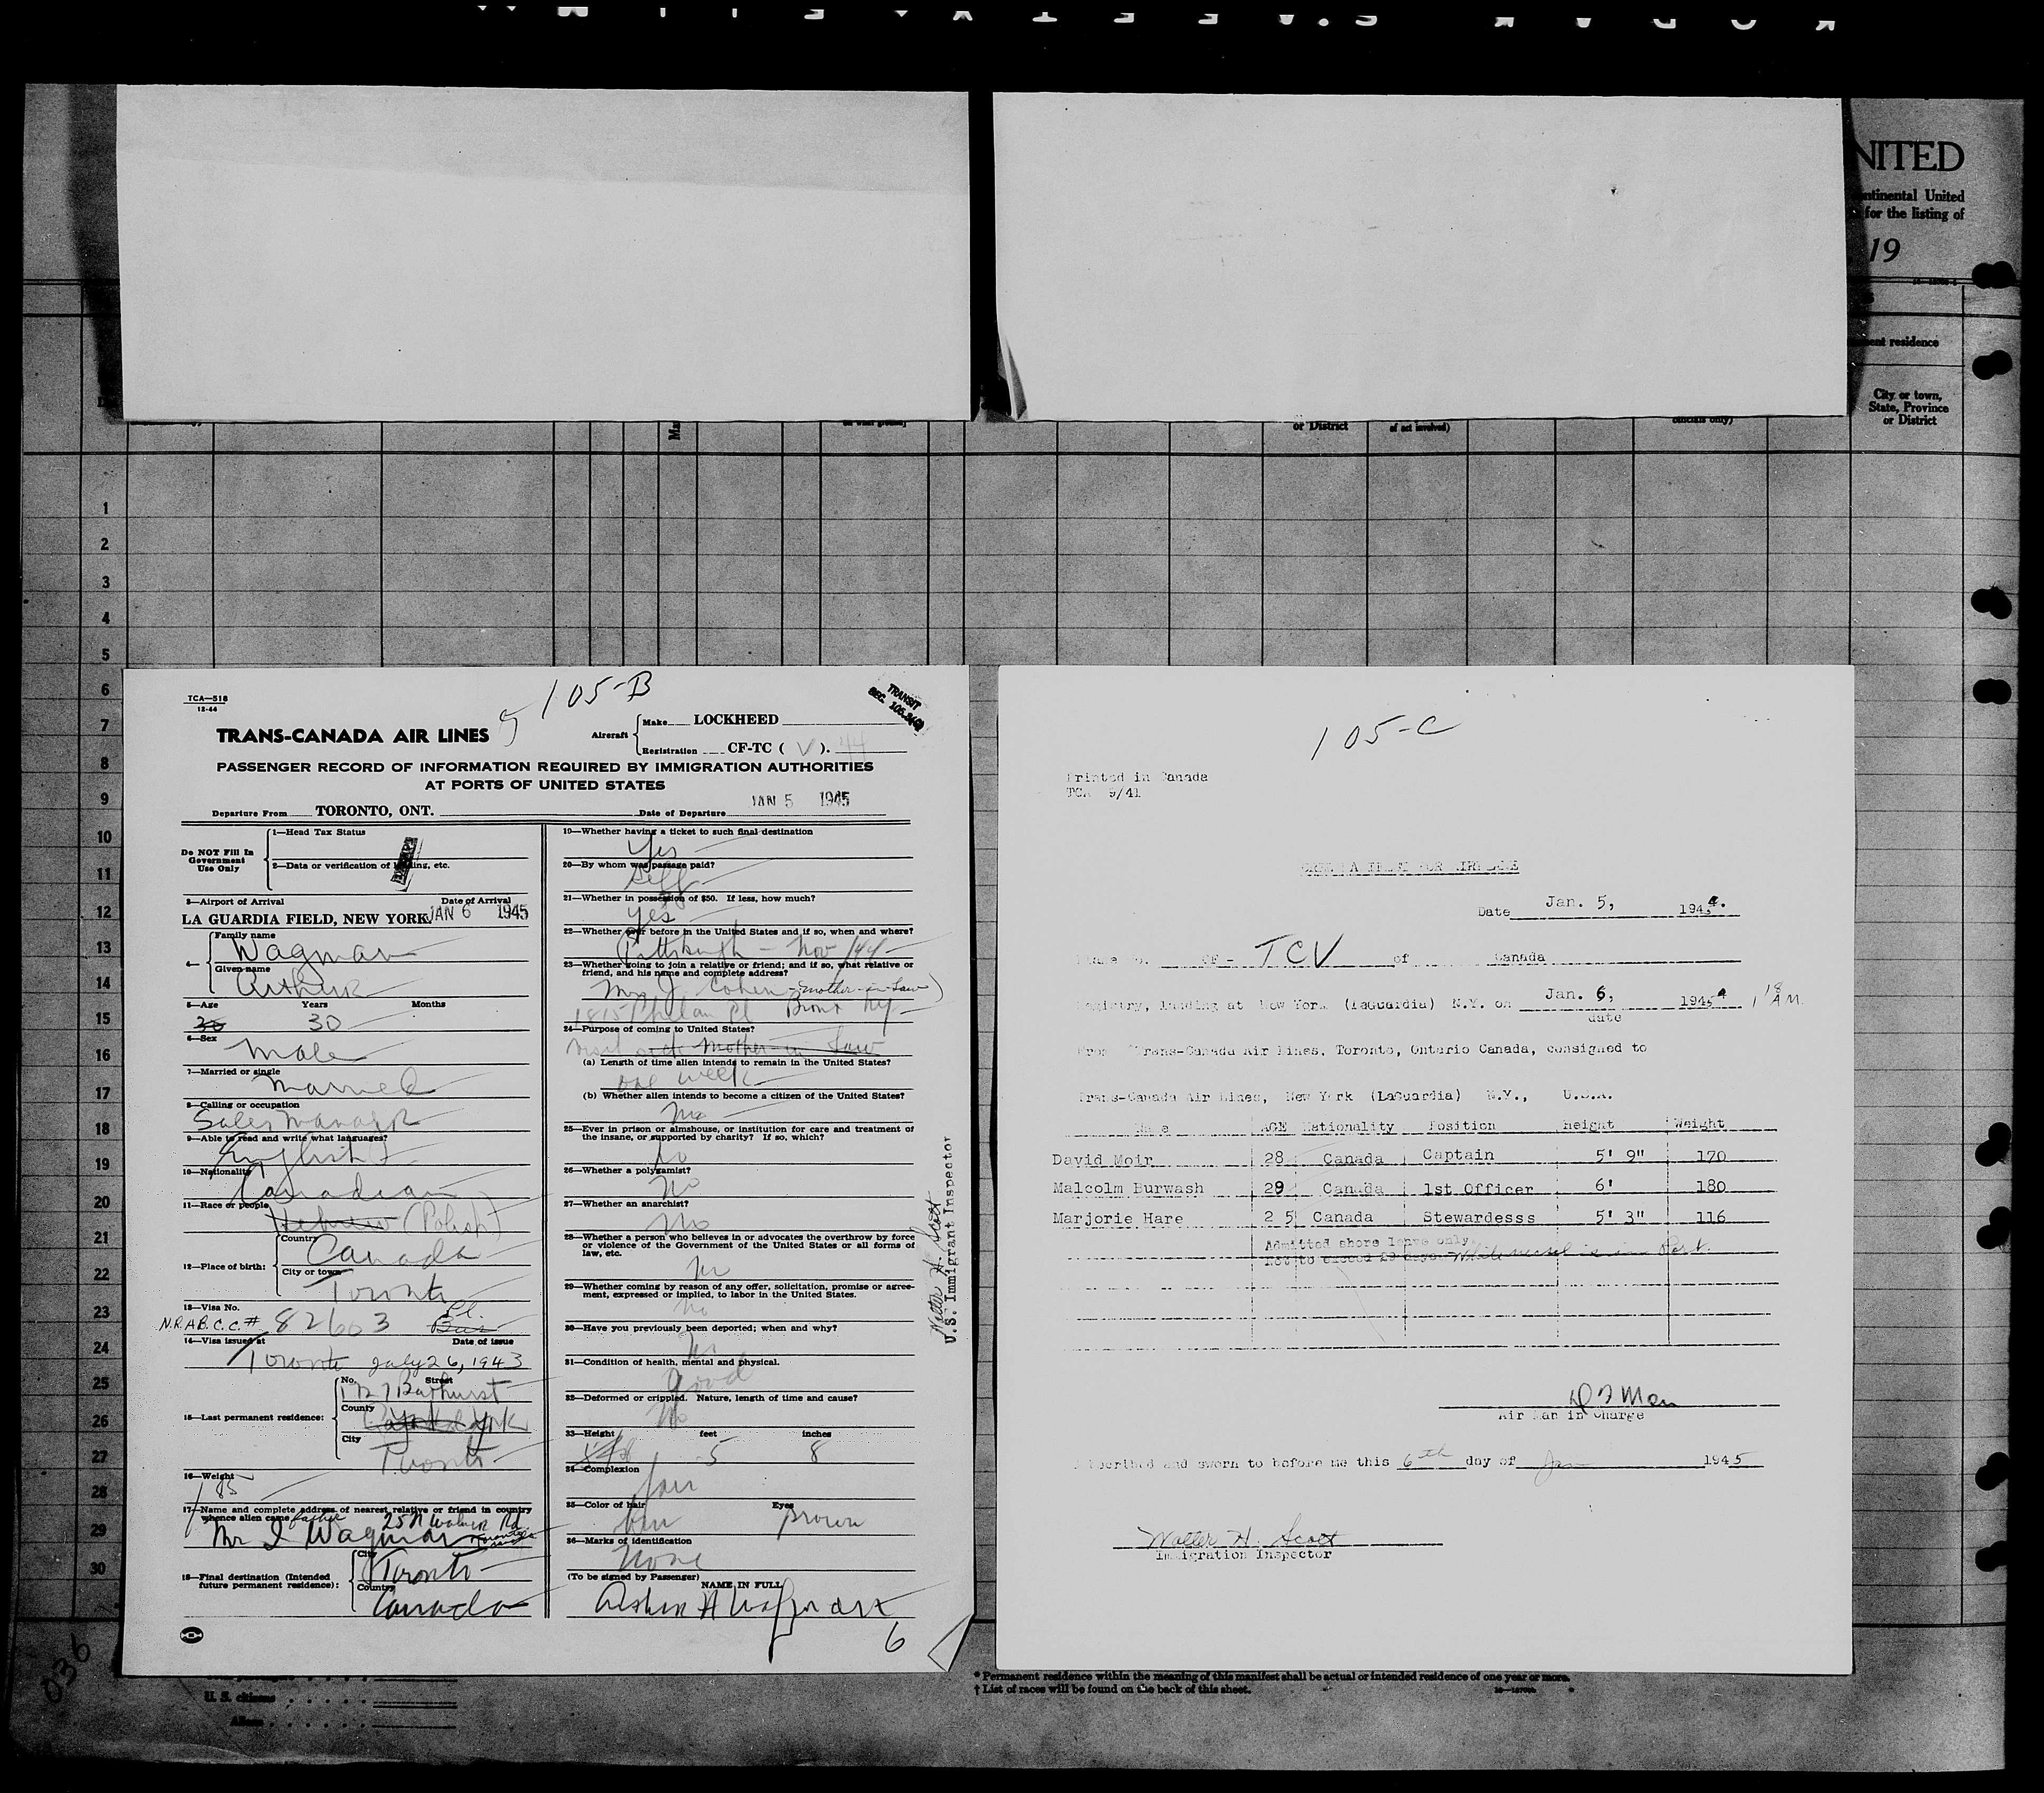 NITED
ntinental United
for the listing of
19
ent residence
City or town,
State, Province
or District
or District
of act involved)
officials only)
1
2
3
4
5
6
7
8
9
10
11
12
13
14
15
16
17
18
19
20
21
22
23
24
25
26
27
28
29
30
TCA—518
12-44
105-B
TRANSIT
TRANS-CANADA AIR LINES
Aircraft
Make LOCKHEED
Registration CF-TC ( V ). 44
PASSENGER RECORD OF INFORMATION REQUIRED BY IMMIGRATION AUTHORITIES
AT PORTS OF UNITED STATES
Departure From TORONTO, ONT. Date of Departure JAN 5 1945
Do NOT Fill In
Government
Use Only
1—Head Tax Status
2—Data or verification of landing, etc.
3—Airport of Arrival Date of Arrival
LA GUARDIA FIELD, NEW YORK JAN 6 1945
4— Family name
Wagman
Given name
Arthur
5—Age Years Months
30 30
6—Sex
Male
7—Married or single
Married
8—Calling or occupation
Sales Manager
9—Able to read and write what languages?
English
10—Nationality
Canadian
11—Race or people
Hebrew (Polish)
12—Place of birth:
Country
Canada
City or town
Toronto
13—Visa No.
N.R.A.B.C.C.# 82603
14—Visa issued at Date of issue
Toronto July 26, 1943
15—Last permanent residence:
No. Street
1727 Bathurst
County
York
City
Toronto
16—Weight
185
17—Name and complete address of nearest relative or friend in country
whence alien came father
Mr I Wagman
18—Final destination (Intended
future permanent residence):
City
Toronto
Country
Canada
19—Whether having a ticket to such final destination
Yes
20—By whom was passage paid?
Self
21—Whether in possession of $50. If less, how much?
Yes
22—Whether ever before in the United States and if so, when and where?
Pittsburgh - Nov/44
23—Whether going to join a relative or friend; and if so, what relative or
friend, and his name and complete address?
Mrs J. Cohen - mother-in-law)
1815 Phelan Pl Bronx NY
24—Purpose of coming to United States?
mother in law
(a) Length of time alien intends to remain in the United States?
one week
(b) Whether alien intends to become a citizen of the United States?
No
25—Ever in prison or almshouse, or institution for care and treatment of
the insane, or supported by charity? If so, which?
No
26—Whether a polygamist?
No
27—Whether an anarchist?
No
28—Whether a person who believes in or advocates the overthrow by force
or violence of the Government of the United States or all forms of
law, etc.
No
29—Whether coming by reason of any offer, solicitation, promise or agree-
ment, expressed or implied, to labor in the United States.
No
30—Have you previously been deported; when and why?
No
31—Condition of health, mental and physical.
Good
32—Deformed or crippled. Nature, length of time and cause?
No
33—Height feet inches
5 8
34—Complexion
fair
35—Color of hair Eyes
Brown
36—Marks of identification
None
(To be signed by Passenger)
NAME IN FULL
6
Walter H. Scott
U.S. Immigrant Inspector
036
U. S. citizens
Aliens
105-C
Printed in Canada
TCA 9/41
Date Jan. 5, 194
Plane No. CF - TCV of Canada
Registry, landing at New York (LaGuardia) N.Y. on Jan. 6, 1945
date
From Trans-Canada Air Lines, Toronto, Ontario Canada, consigned to
Trans-Canada Air Lines, New York (LaGuardia) N.Y., U.S.A.
Name AGE Nationality Position Height Weight
David Moir 28 Canada Captain 5' 9" 170
Malcolm Burwash 29 Canada 1st Officer 6' 180
Marjorie Hare 25 Canada Stewardesss 5' 3" 116
Admitted shore leave only.
Not to exceed 29 days. While vessel is in Port.
Air Man in Charge
Subscribed and sworn to before me this 6th day of Jan 1945
Walter H. Scott
Immigration Inspector
* Permanent residence within the meaning of this manifest shall be actual or intended residence of one year or more.
† List of races will be found on the back of this sheet.